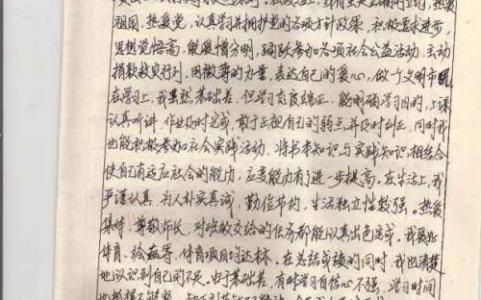 祖国，热爱党，认真学习并拥护党的各项方针政策，积极要求进步，
思想觉悟高，能爱憎分明，踊跃参加各项社会公益活动，主动
捐款救灾行列，用微薄的力量，表达自己的爱心，做个文明市民
在学习上，我虽然基础差，但学习态度端正，能明确学习目的，上课
认真听讲，作业及时完成，敢于正视自己的弱点并及时纠正，同时我
也能积极参加社会实践活动，将书本知识与实践知识相结合
使自己有适应社会的能力，应变能力有进一步提高，在生活上，我
严谨认真，为人朴实真诚，勤俭节约，生活独立性较强。热爱
集体，尊敬师长，对班级交给的任务都能认真出色完成。我
体育、绘画等，体育项目均达标。在总结成绩的同时，我也清楚
地认识到自己的不足，由于基础差，有时学习自信心不强，学习时间